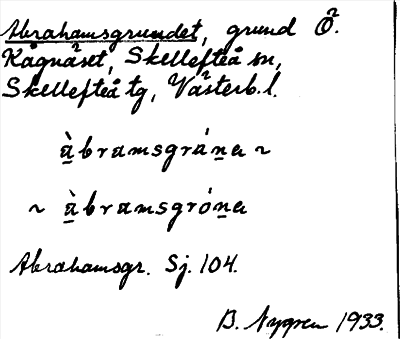 Abrahamsgrundet, grund Ö.
Kågnäset, Skellefteå sn,
Skellefteå tg, Västerb. l.
à̱bramsgráṉa ~
~ à̱bramsgróṉa
Abrahamsgr. Sj. 104.
B. Nygren 1933.